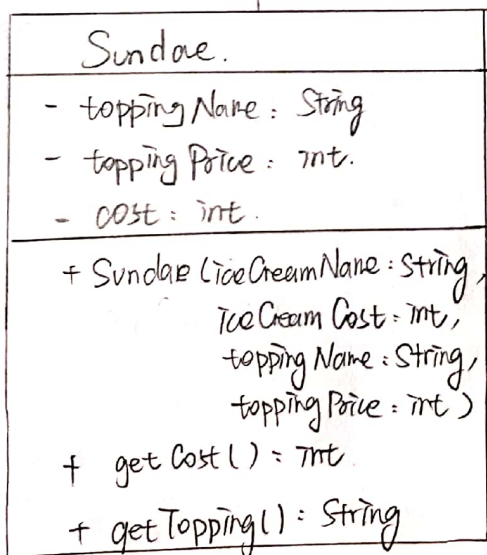 Sundae.
- toppingName : String
- topping Price : int.
- cost : int.
+ Sundae (iceCreamName : String,
iceCream Cost : int,
topping Name : String,
topping Price : int)
+ get Cost() : int
+ getTopping() : String